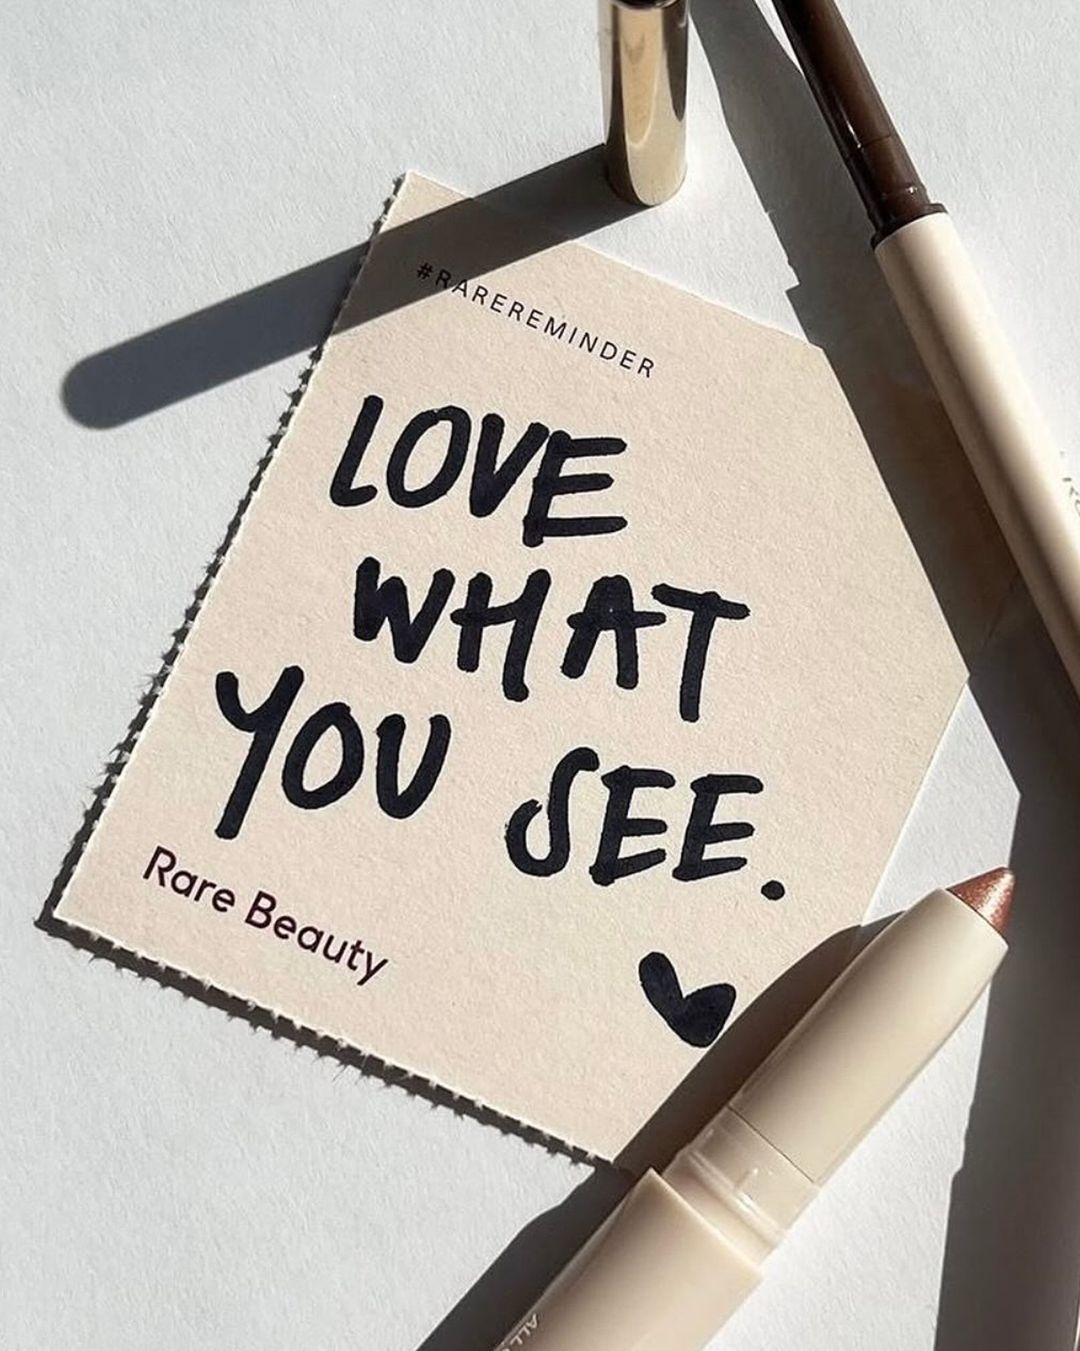 #RAREREMINDER
LOVE
WHAT
YOU SEE.
Rare Beauty
ALL